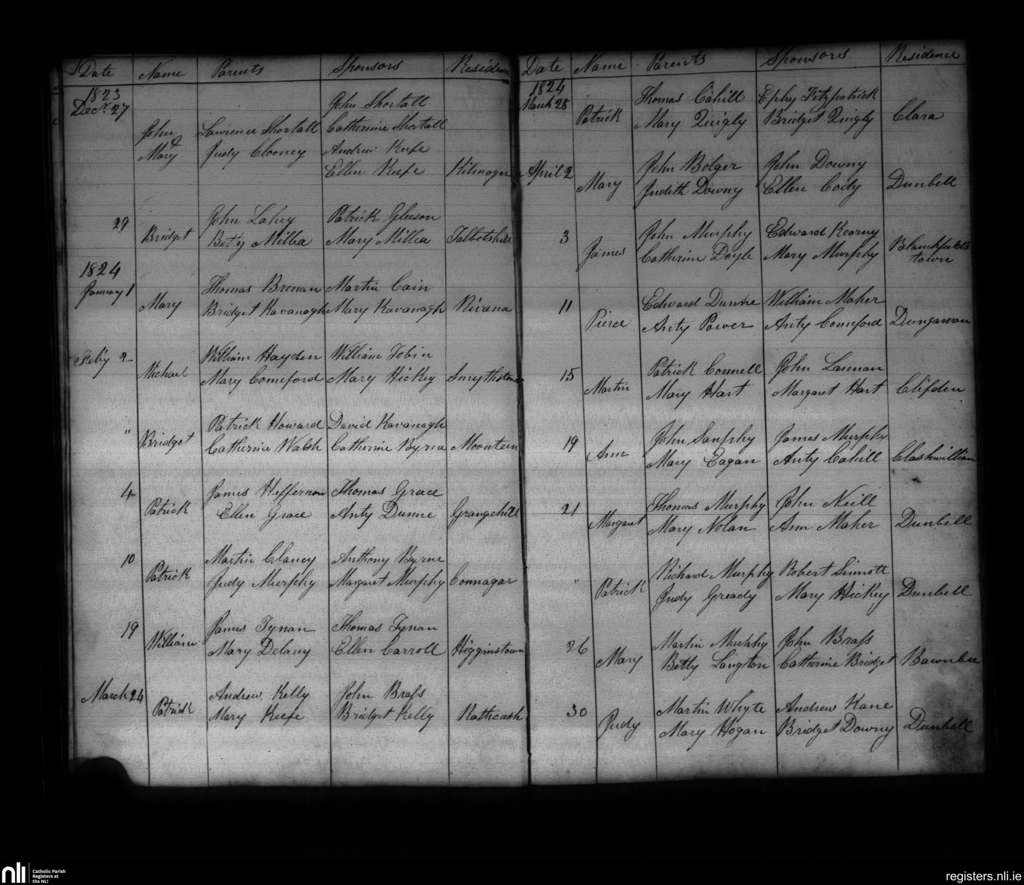 Date Name Parents Sponsors Residence
1823
Decr 27 John Shortall
John & Lawrence Shortall Catherine Shortall
Mary Judy Clooney Andrew Keefe
Ellen Keefe Kilmagar
29 Bridget John Lahey Patrick Gleeson
Betty Millea Mary Millea Talbotshill
1824
January 1 Mary Thomas Brenan Martin Cain
Bridget Kavanagh Mary Kavanagh Nevena
Feby 2 Michael William Hayden William Tobin
Mary Comeford Mary Hickey Smythstown
" Bridget Patrick Howard David Kavanagh
Catherine Walsh Catherine Byrne Moonteen
4 Patrick James Heffernon Thomas Grace
Ellen Grace Anty Dunne Grangehill
10 Patrick Martin Clancy Anthony Byrne
Judy Murphy Margaret Murphy Connagar
19 William James Tynan Thomas Tynan
Mary Delany Ellen Carroll Higginstown
March 24 Patrick Andrew Kelly John Brass
Mary Keefe Bridget Kelly Rathcash
Date Name Parents Sponsors Residence
1824
March 28 Patrick Thomas Cahill Ephy Fitzpatrick
Mary Quigly Bridget Quigly Clara
April 2 Mary John Bolger John Downy
Judith Downy Ellen Cody Dunbell
3 James John Murphy Edward Kearny
Catherine Doyle Mary Murphy Blanchfields
town
11 Pierce Edward Dunne William Maher
Anty Power Anty Comeford Dungarvan
15 Martin Patrick Connell John Lannan
Mary Hart Margaret Hart Clifden
19 Ann John Sanphy James Murphy
Mary Eagan Anty Cahill Clashwillian
21 Margaret Thomas Murphy John Neill
Mary Nolan Ann Maher Dunbell
" Patrick Richard Murphy Robert Sinnott
Judy Gready Mary Hickey Dunbell
26 Mary Martin Murphy John Brass
Betty Langton Catherine Bridget
30 Judy Martin Whyte Andrew Kane
Mary Hogan Bridget Downy Dunbell
nli Catholic Parish
Registers at
the NLI
registers.nli.ie